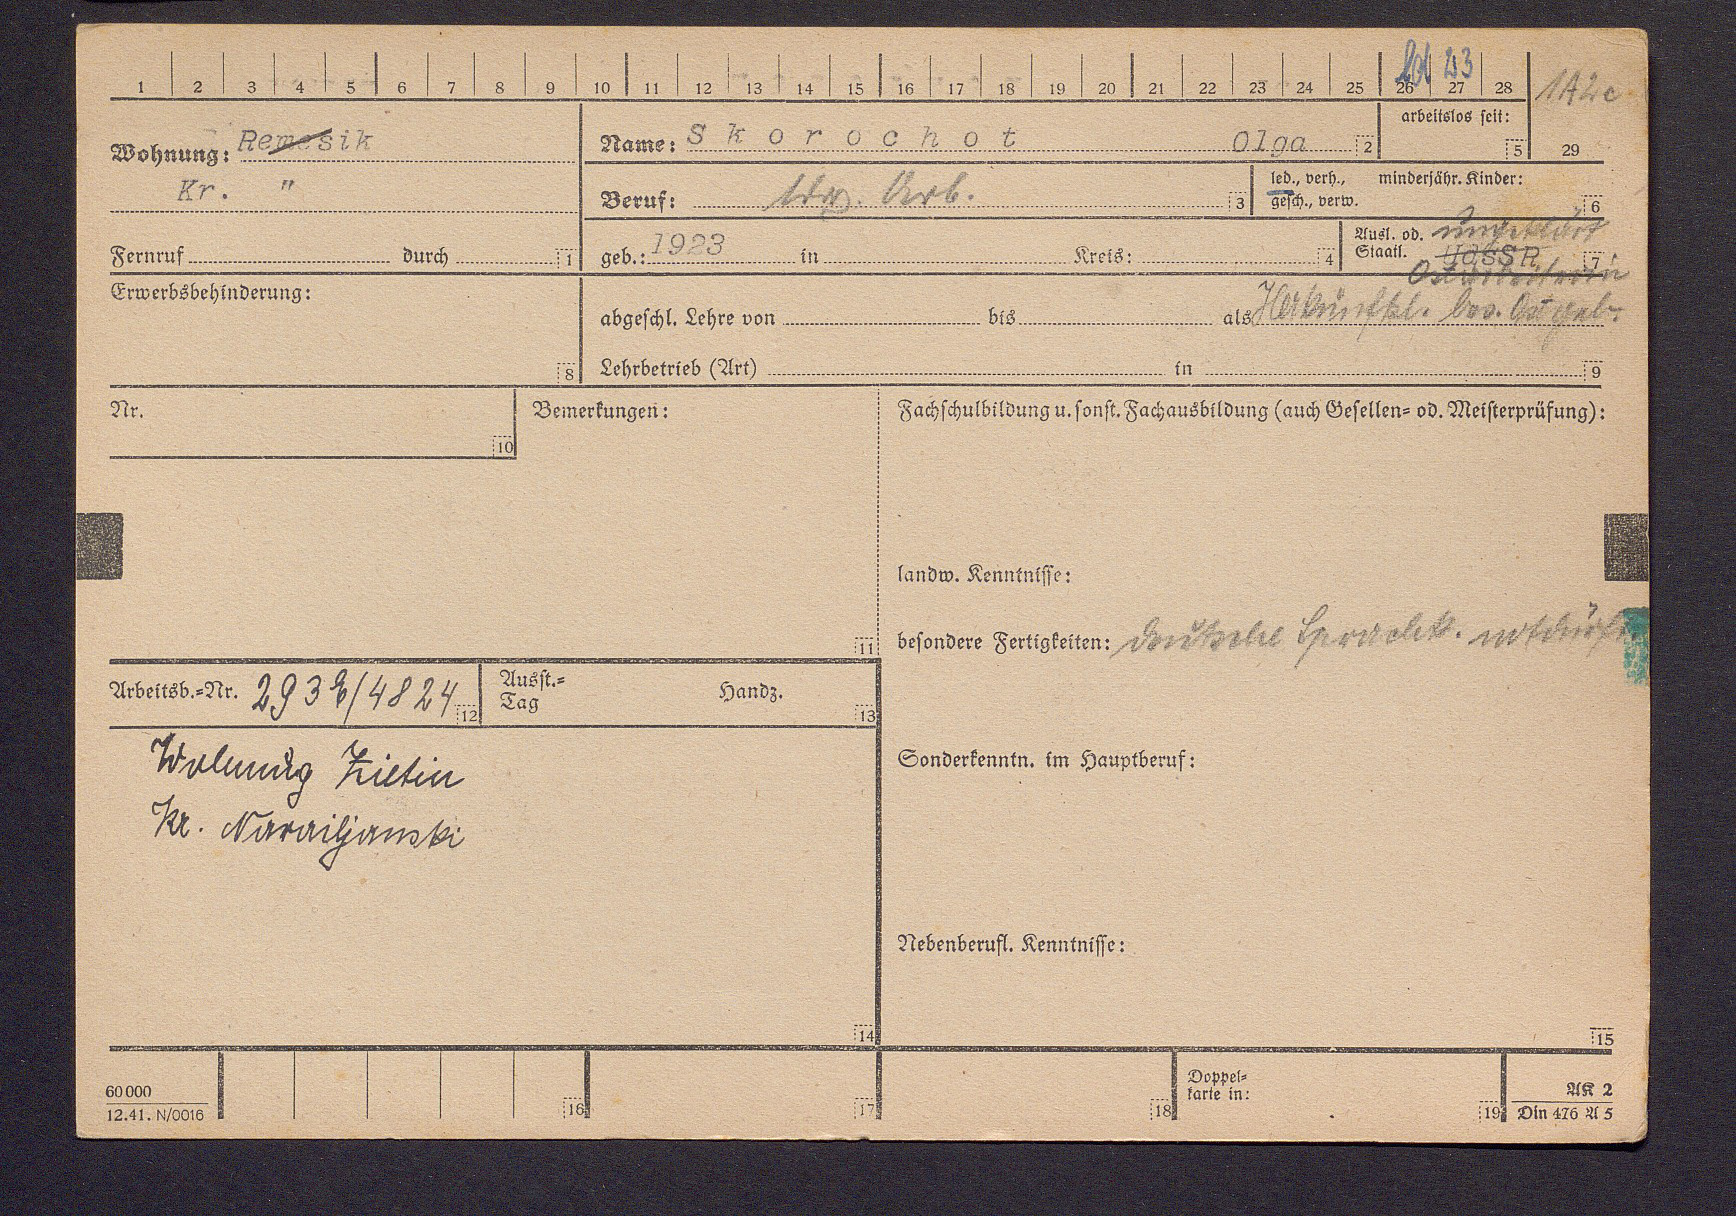 1 2 3 4 5 6 7 8 9 10 11 12 13 14 15 16 17 18 19 20 21 22 23 24 25 26 27 28 1A2c
arbeitslos seit:
5 29
Wohnung: Remesik
Kr. "
Fernruf durch 1
Name: Skorochot Olga 2
Beruf: ldw. Arb. 3
led., verh., minderjähr. Kinder:
gesch., verw. 6
geb.: 1923 in Kreis: 4
Ausl. od. ungeklärt
Staatl. UdSSR 7
Ostarbeiterin
Erwerbsbehinderung:
8
abgeschl. Lehre von bis als Herkunftsl. bes. Ostgeb.
Lehrbetrieb (Art) in 9
Nr.
10
Bemerkungen:
11
Fachschulbildung u. sonst. Fachausbildung (auch Gesellen= od. Meisterprüfung):
landw. Kenntnisse:
besondere Fertigkeiten: deutsche Sprachk. notdürft.
Arbeitsb.=Nr. 293 /4824 12
Ausst.=
Tag Handz.
13
Wohnung Ziltin
Kr. Narailjanski
14
Sonderkenntn. im Hauptberuf:
Nebenberufl. Kenntnisse:
15
60000
12.41. N/0016
16 17 18
Doppel=
karte in:
19
AK 2
Din 476 A 5